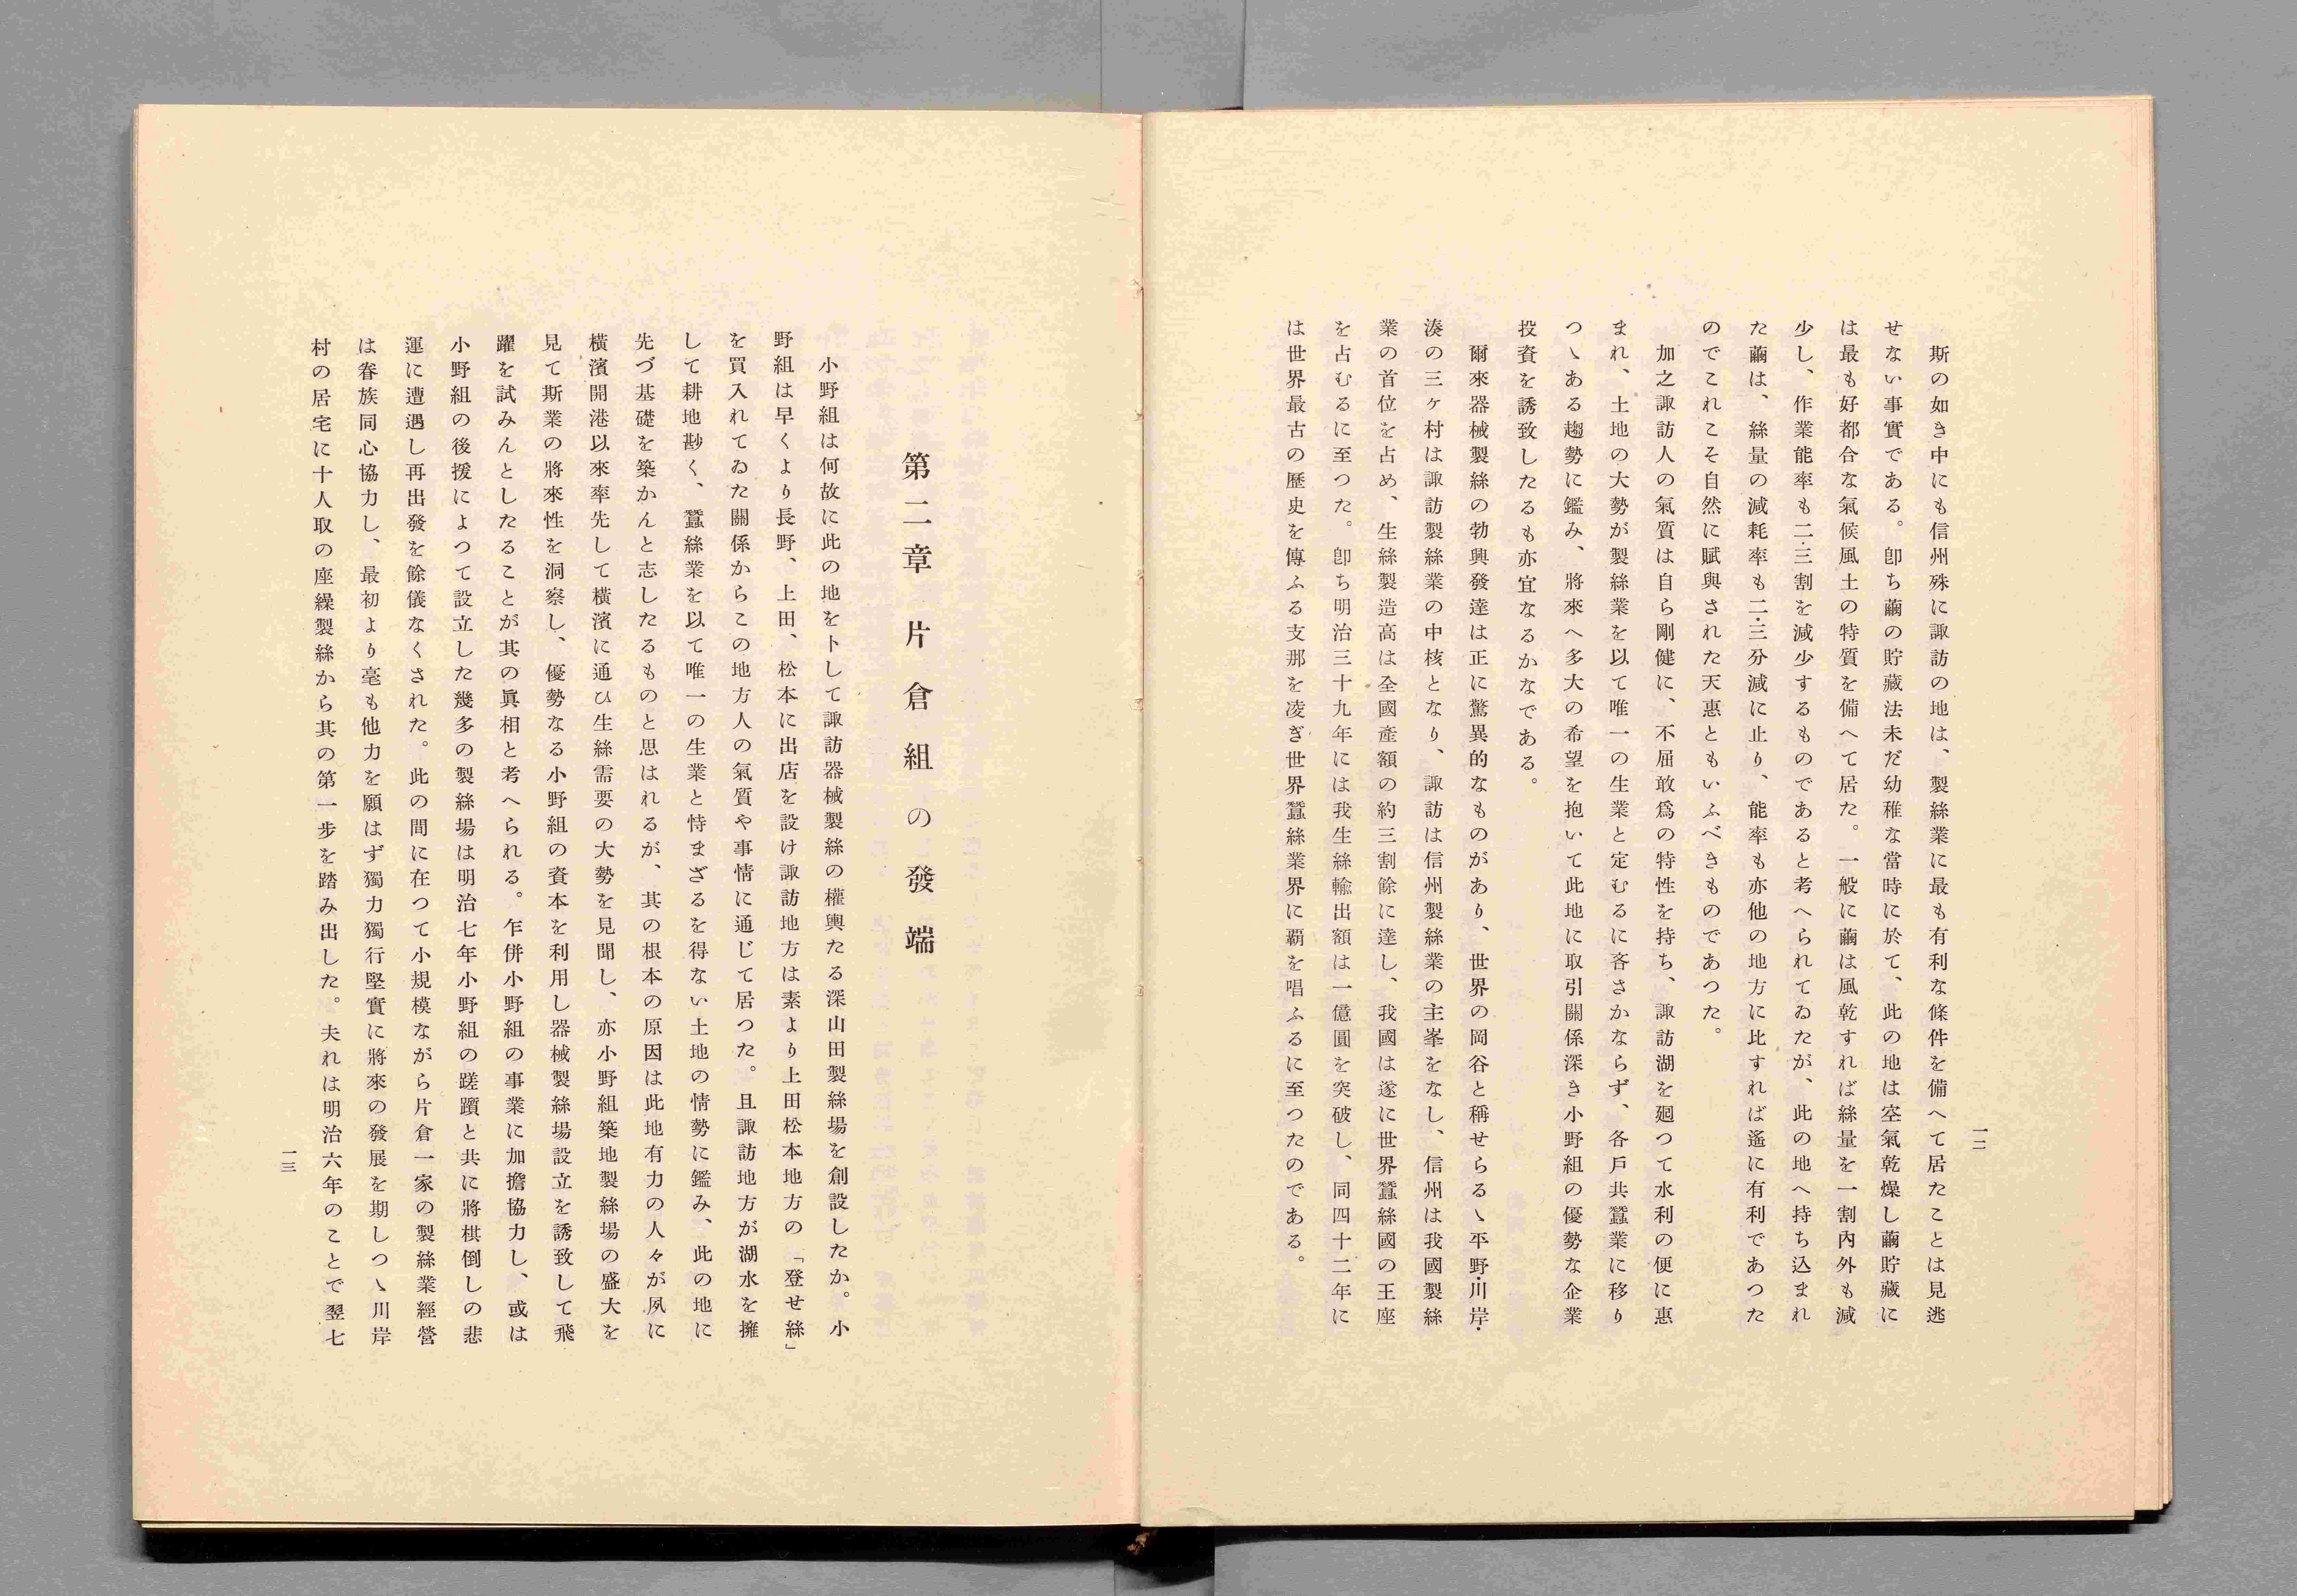 斯の如き中にも信州殊に諏訪の地は、製絲業に最も有利な條件を備へて居たことは見逃
せない事實である。卽ち繭の貯藏法未だ幼稚な當時に於て、此の地は空氣乾燥し繭貯藏に
は最も好都合な氣候風土の特質を備へて居た。一般に繭は風乾すれば絲量を一割內外も減
少し、作業能率も二・三割を減少するものであると考へられてゐたが、此の地へ持ち込まれ
た繭は、絲量の減耗率も二・三分減に止り、能率も亦他の地方に比すれば遙に有利であつた
のでこれこそ自然に賦與された天惠ともいふべきものであつた。
加之諏訪人の氣質は自ら剛健に、不屈敢爲の特性を持ち、諏訪湖を廻つて水利の便に惠
まれ、土地の大勢が製絲業を以て唯一の生業と定むるに吝さかならず、各戶共蠶業に移り
つゝある趨勢に鑑み、將來へ多大の希望を抱いて此地に取引關係深き小野組の優勢な企業
投資を誘致したるも亦宜なるかなである。
爾來器械製絲の勃興發達は正に驚異的なものがあり、世界の岡谷と稱せらるゝ平野・川岸・
湊の三ヶ村は諏訪製絲業の中核となり、諏訪は信州製絲業の主峯をなし、信州は我國製絲
業の首位を占め、生絲製造高は全國產額の約三割餘に達し、我國は遂に世界蠶絲國の王座
を占むるに至つた。卽ち明治三十九年には我生絲輸出額は一億圓を突破し、同四十二年に
は世界最古の歷史を傳ふる支那を凌ぎ世界蠶絲業界に覇を唱ふるに至つたのである。
一二
第二章 片倉組の發端
小野組は何故に此の地を卜して諏訪器械製絲の權輿たる深山田製絲場を創設したか。小
野組は早くより長野、上田、松本に出店を設け諏訪地方は素より上田松本地方の「登せ絲」
を買入れてゐた關係からこの地方人の氣質や事情に通じて居つた。且諏訪地方が湖水を擁
して耕地尠く、蠶絲業を以て唯一の生業と恃まざるを得ない土地の情勢に鑑み、此の地に
先づ基礎を築かんと志したるものと思はれるが、其の根本の原因は此地有力の人々が夙に
橫濱開港以來率先して橫濱に通ひ生絲需要の大勢を見聞し、亦小野組築地製絲場の盛大を
見て斯業の將來性を洞察し、優勢なる小野組の資本を利用し器械製絲場設立を誘致して飛
躍を試みんとしたることが其の眞相と考へられる。乍併小野組の事業に加擔協力し、或は
小野組の後援によつて設立した幾多の製絲場は明治七年小野組の蹉躓と共に將棋倒しの悲
運に遭遇し再出發を餘儀なくされた。此の間に在つて小規模ながら片倉一家の製絲業經營
は眷族同心協力し、最初より毫も他力を願はず獨力獨行堅實に將來の發展を期しつゝ川岸
村の居宅に十人取の座繰製絲から其の第一步を踏み出した。夫れは明治六年のことで翌七
一三